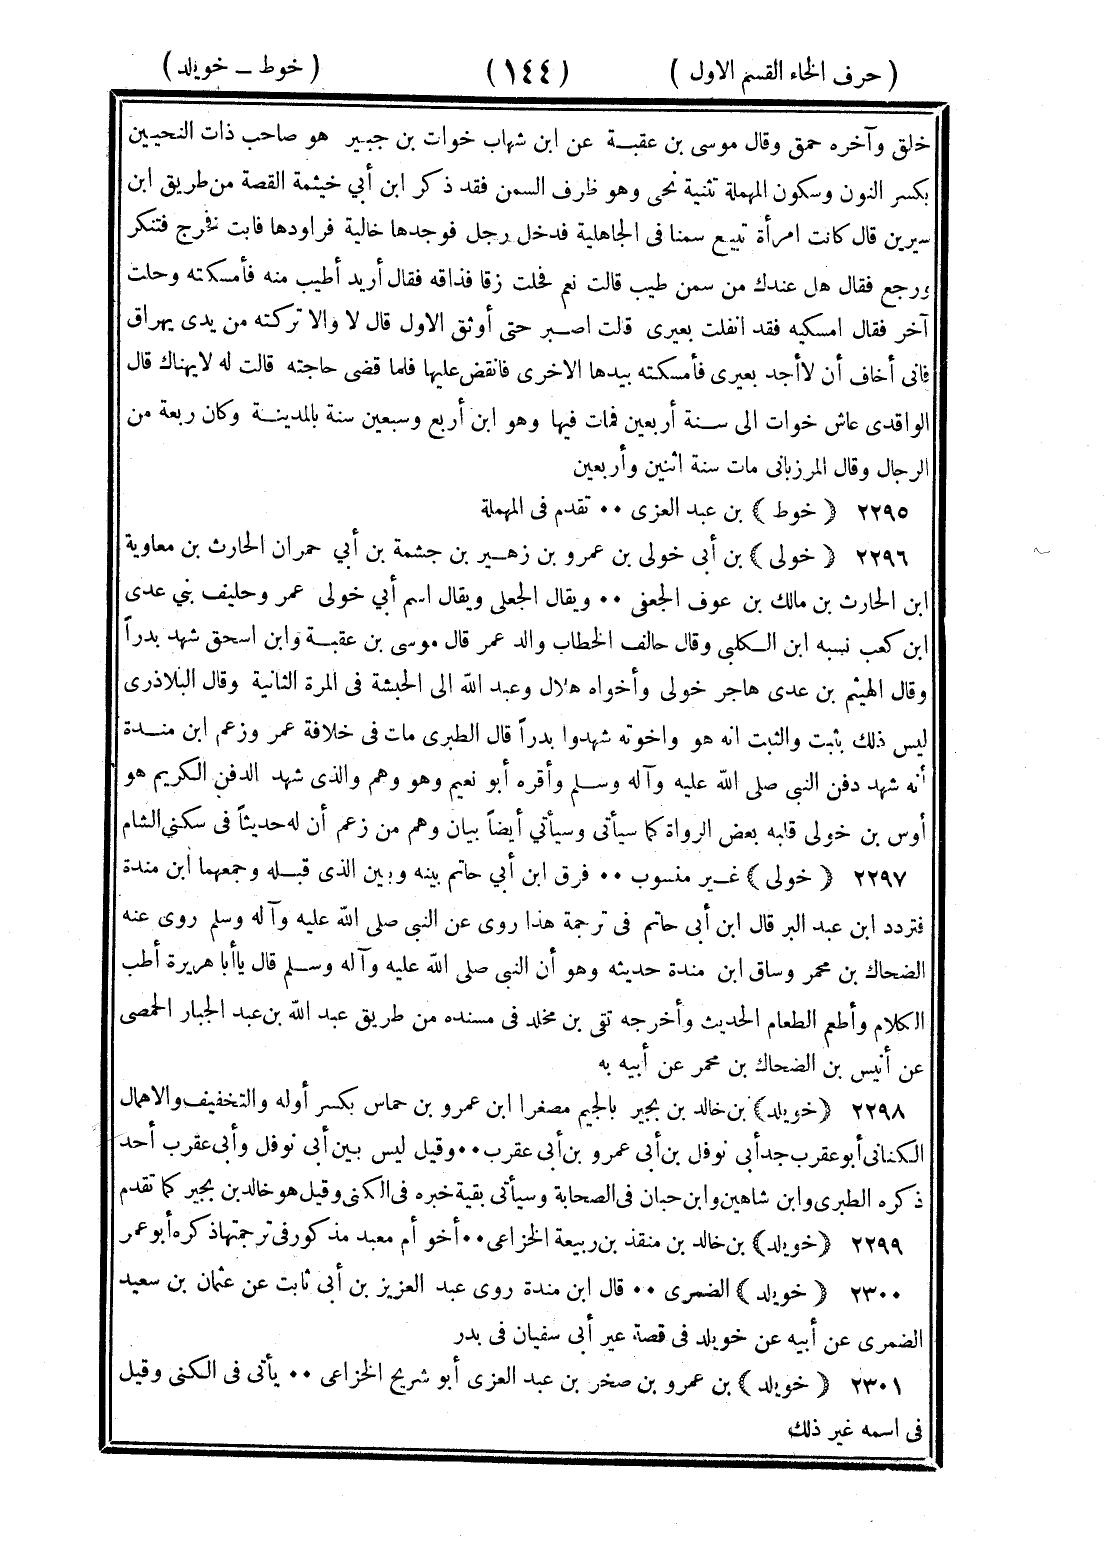 ( حرف الخاء القسم الاول )
( ١٤٤ )
( خوط ــ خويلد )
خلق وآخره حمق وقال موسى بن عقبة عن ابن شهاب خوات بن جبير هو صاحب ذات النحيين
بكسر النون وسكون المهملة تثنية نحى وهو ظرف السمن فقد ذكر ابن أبي خيثمة القصة من طريق ابن
سيرين قال كانت امرأة تبيع سمنا فى الجاهلية فدخل رجل فوجدها خالية فراودها فابت نخرج فتنكر
ورجع فقال هل عندك من سمن طيب قالت نعم فحلت زقا فذاقه فقال أريد أطيب منه فأمسكته وحلت
آخر فقال امسكيه فقد انفلت بعيرى قالت اصبر حتى أوثق الاول قال لا والا تركته من يدى يهراق
فانى أخاف أن لا أجد بعيرى فأمسكته بيدها الاخرى فانقض عليها فلما قضى حاجته قالت له لا يهناك قال
الواقدى عاش خوات الى سنة أربعين فمات فيها وهو ابن أربع وسبعين سنة بالمدينة وكان ربعة من
الرجال وقال المرزبانى مات سنة اثنين وأربعين
٢٢٩٥ ﴿ خوط ﴾ بن عبد العزى ٠٠ تقدم فى المهملة
٢٢٩٦ ﴿ خولى ﴾ بن أبى خولى بن عمرو بن زهير بن جشمة بن أبي حمران الحارث بن معاوية
ابن الحارث بن مالك بن عوف الجعفى ٠٠ ويقال الجعلى ويقال اسم أبي خولى عمر وحليف بني عدى
ابن كعب نسبه ابن الكلبى وقال حالف الخطاب والد عمر قال موسى بن عقبة وابن اسحق شهد بدراً
وقال الهيثم بن عدى هاجر خولى وأخواه هلال وعبد الله الى الحبشة فى المرة الثانية وقال البلاذرى
ليس ذلك بثبت والثبت انه هو واخوته شهدوا بدراً قال الطبرى مات فى خلافة عمر وزعم ابن مندة
أنه شهد دفن النبى صلى الله عليه وآله وسلم وأقره أبو نعيم وهو وهم والذى شهد الدفن الكريم هو
أوس بن خولى قلبه بعض الرواة كما سيأتى وسيأتي أيضاً بيان وهم من زعم أن له حديثاً فى سكنى الشام
٢٢٩٧ ﴿ خولى ﴾ غير منسوب ٠٠ فرق ابن أبي حاتم بينه وبين الذى قبله وجمعهما ابن مندة
فتردد ابن عبد البر قال ابن أبى حاتم فى ترجمة هذا روى عن النبى صلى الله عليه وآله وسلم روى عنه
الضحاك بن مخمر وساق ابن مندة حديثه وهو أن النبى صلى الله عليه وآله وسلم قال يا أبا هريرة أطب
الكلام وأطعم الطعام الحديث وأخرجه تقى بن مخلد فى مسنده من طريق عبد الله بن عبد الجبار الحمصى
عن أنيس بن الضحاك بن مخمر عن أبيه به
٢٢٩٨ ﴿ خويلد ﴾ بن خالد بن بجير بالجيم مصغرا ابن عمرو بن حماس بكسر أوله والتخفيف والاهمال
الكنانى أبو عقرب جد أبى نوفل بن أبى عمرو بن أبى عقرب ٠٠ وقيل ليس بين أبى نوفل وأبى عقرب أحد
ذكره الطبرى وابن شاهين وابن حبان فى الصحابة وسيأتى بقية خبره فى الكنى وقيل هو خالد بن بجير كما تقدم
٢٢٩٩ ﴿ خويلد ﴾ بن خالد بن منقذ بن ربيعة الخزاعى ٠٠ أخو أم معبد مذكور فى ترجمتها ذكره أبو عمر
٢٣٠٠ ﴿ خويلد ﴾ الضمرى ٠٠ قال ابن مندة روى عبد العزيز بن أبى ثابت عن عثمان بن سعيد
الضمرى عن أبيه عن خويلد فى قصة عير أبى سفيان فى بدر
٢٣٠١ ﴿ خويلد ﴾ بن عمرو بن صخر بن عبد العزى أبو شريح الخزاعى ٠٠ يأتى فى الكنى وقيل
فى اسمه غير ذلك